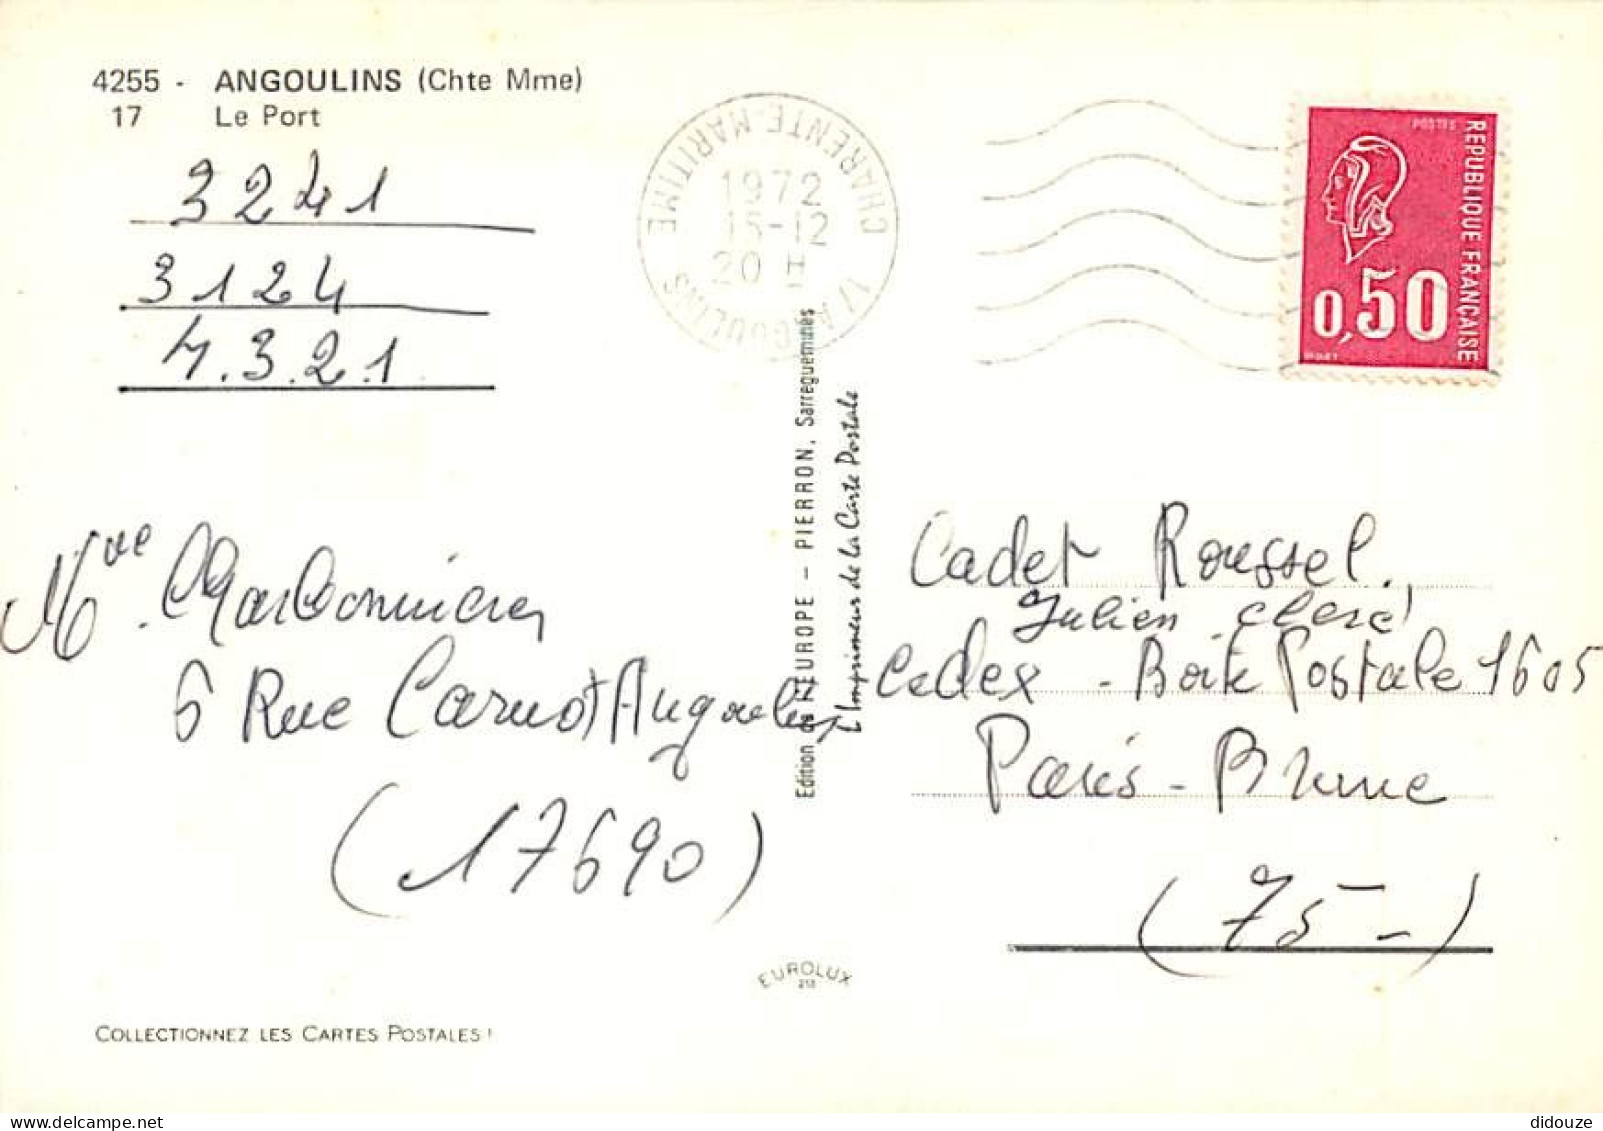 4255 - ANGOULINS (Chte Mme)
17 Le Port
3241
3124
4.3.2.1
CHARENTE-MARITIME
1972
15-12
20 H
17 ANGOULINS
POSTES
REPUBLIQUE FRANÇAISE
0,50
Edition de l'EUROPE - PIERRON, Sarreguemines
L'Imprimeur de la Carte Postale
Mme. Charbonnier
6 Rue Carnot Angoulins
(17690)
Cadet Roussel.
Julien clerc
Cedex - Boite Postale 1605
Paris - Brune
(75-)
EUROLUX
COLLECTIONNEZ LES CARTES POSTALES!
didouze